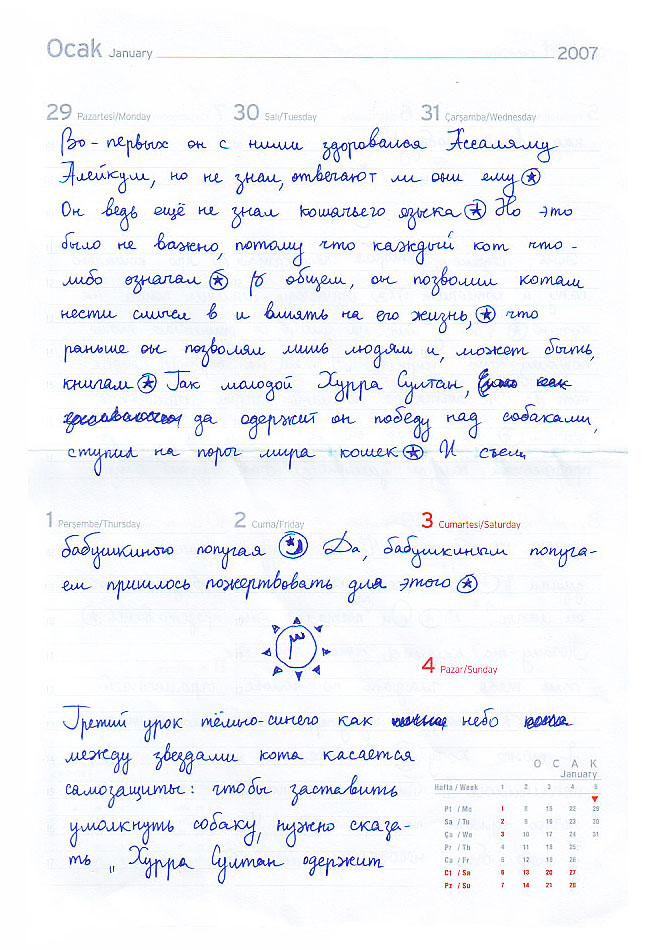 Ocak January 2007
29 Pazartesi/Monday 30 Salı/Tuesday 31 Çarşamba/Wednesday
Во-первых он с ними здоровался Ассаляму
Алейкум, но не знал, отвечают ли они ему
Он ведь ещё не знал кошачьего языка Но это
было не важно, потому что каждый кот что-
либо означал В общем, он позволил котам
нести смысл в и влиять на его жизнь, что
раньше он позволял лишь людям и, может быть,
книгам Так молодой Хурра Султан,
да одержит он победу над собаками,
ступил на порог мира кошек И съел
1 Perşembe/Thursday 2 Cuma/Friday 3 Cumartesi/Saturday
бабушкиного попугая Да, бабушкиным попуга-
ем пришлось пожертвовать для этого
٣
4 Pazar/Sunday
Третий урок тёмно-синего как небо
между звездами кота касается
самозащиты: чтобы заставить
умолкнуть собаку, нужно сказа-
ть „Хурра Султан одержит
O C A K
January
Hafta / Week 1 2 3 4 5
Pt / Mo 1 8 15 22 29
Sa / Tu 2 9 16 23 30
Ça / We 3 10 17 24 31
Pr / Th 4 11 18 25
Cu / Fr 5 12 19 26
Ct / Sa 6 13 20 27
Pz / Su 7 14 21 28